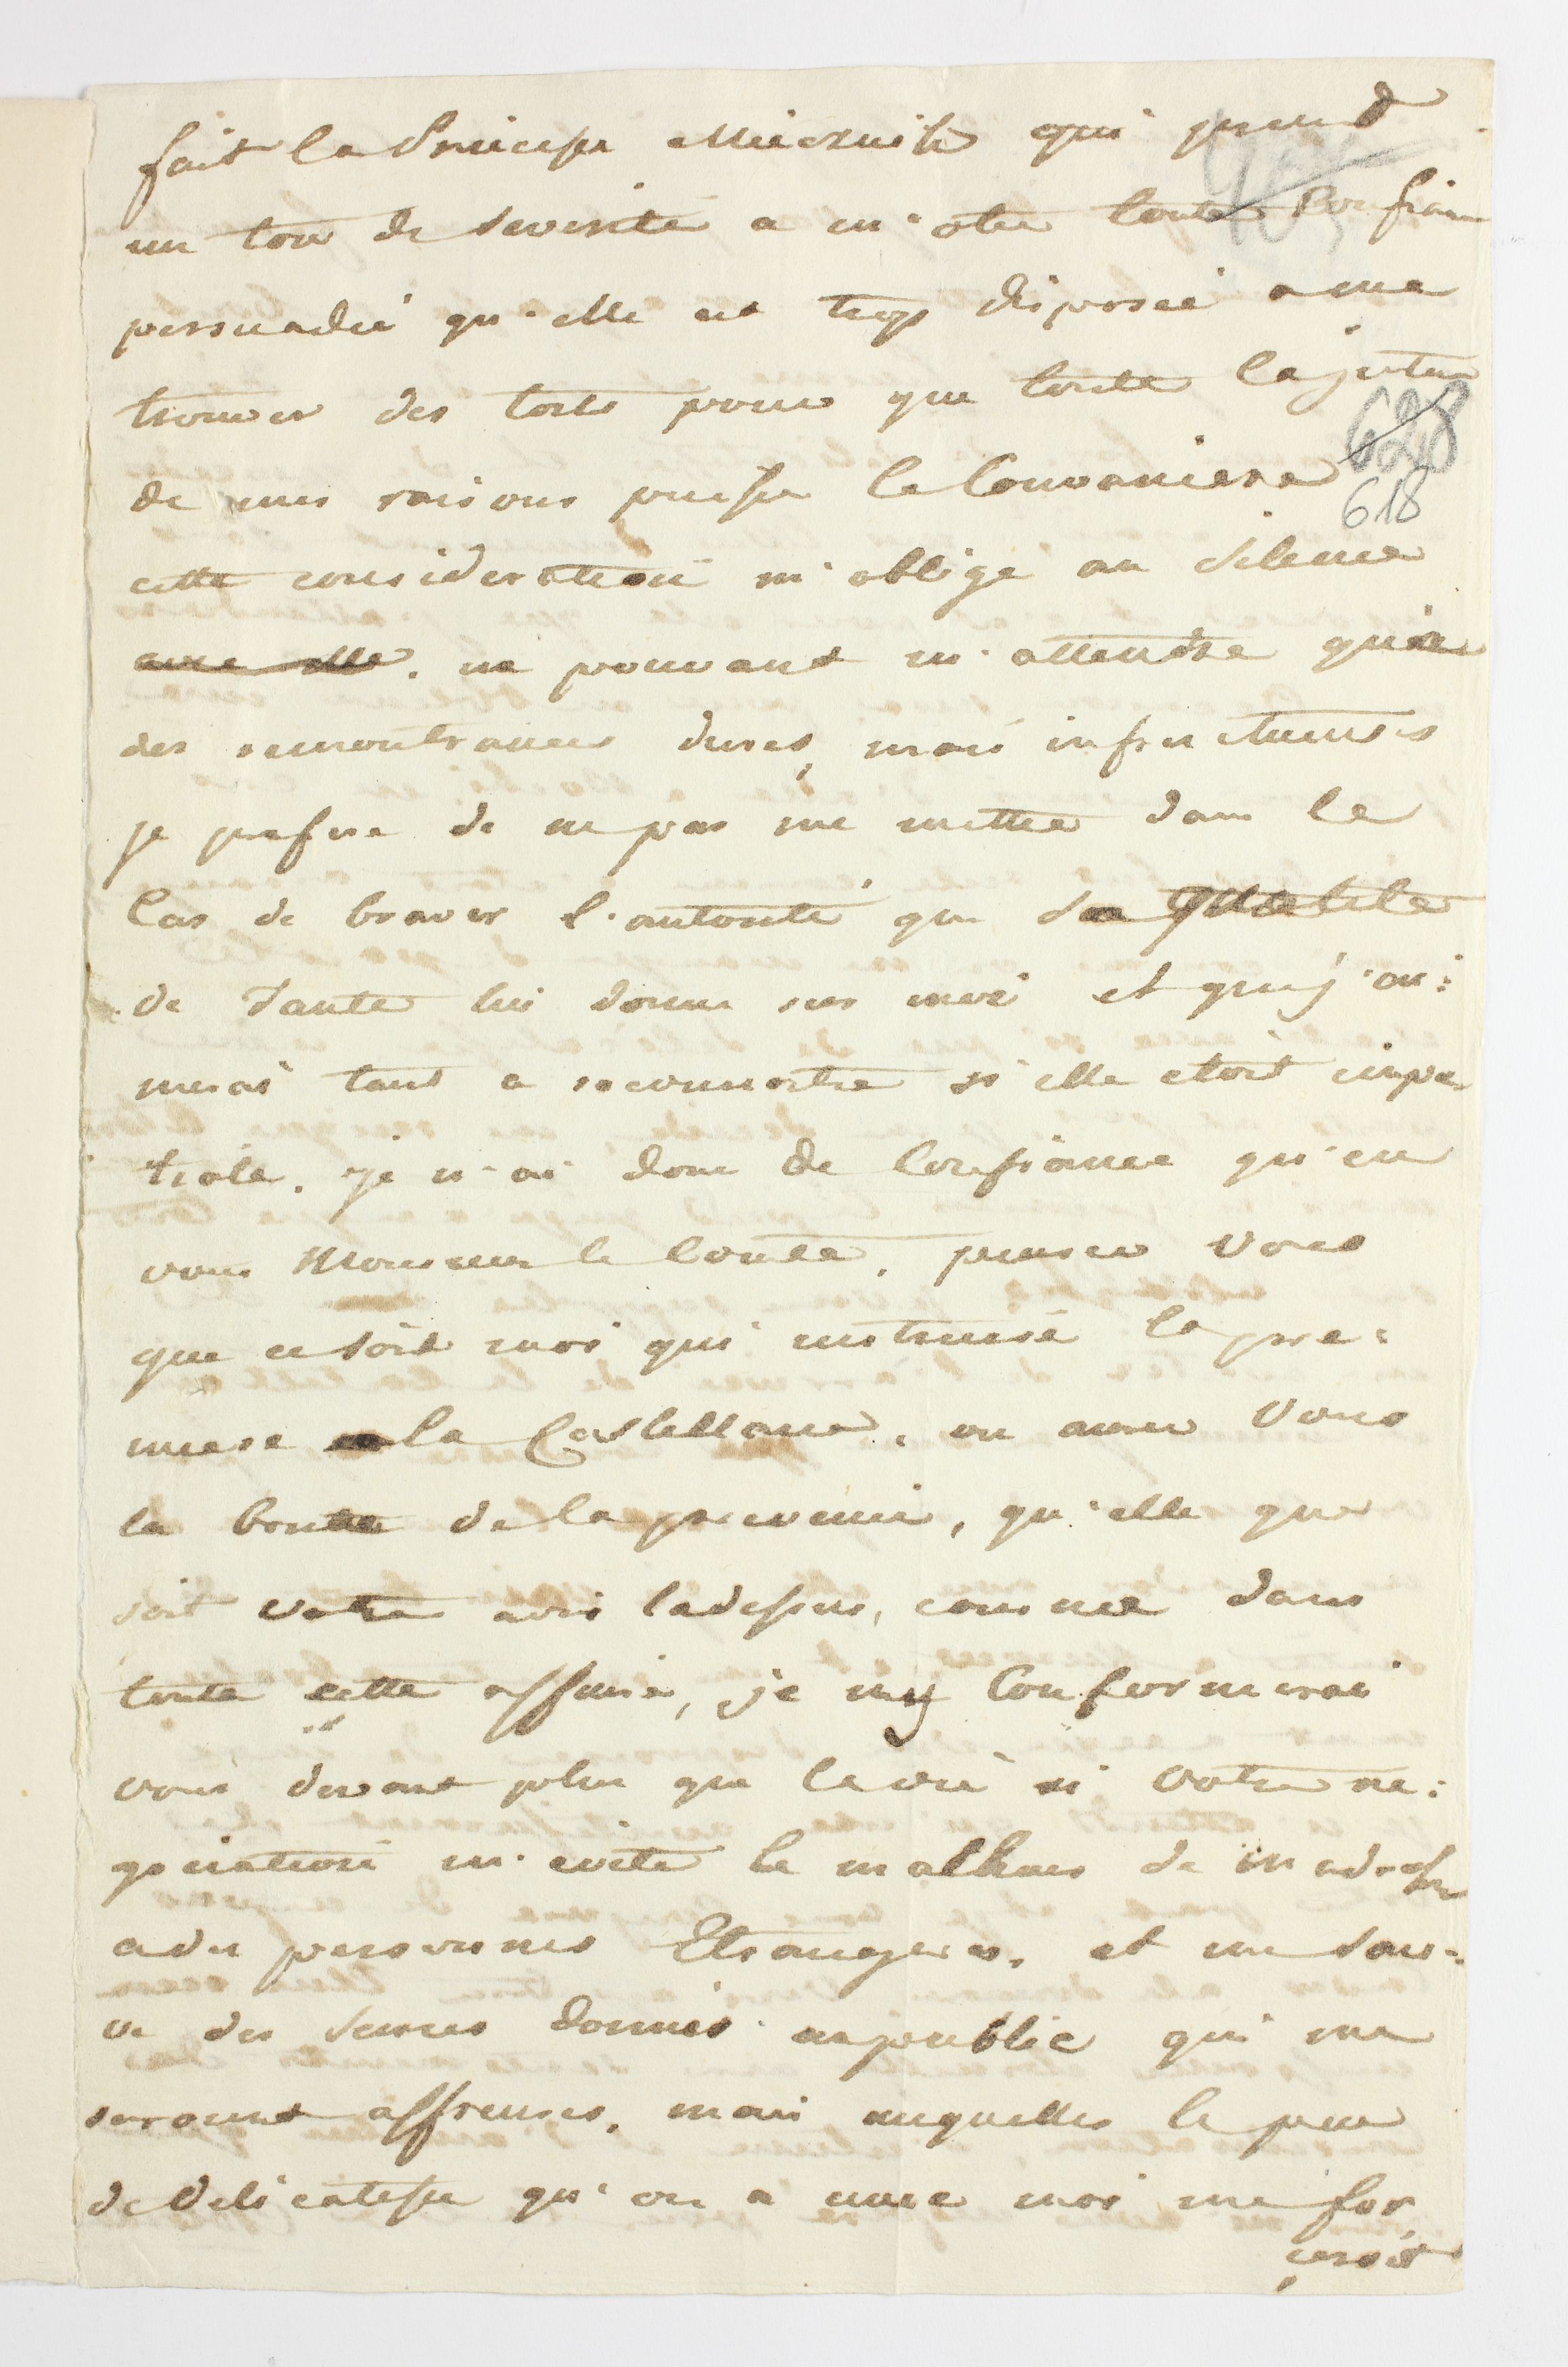 fait la Princesse qui prend
un ton de severité a m'oter toute Confian
persuadée qu'elle est trop disposée a me
trouver des torts pour que toute la justice
de mes raisons puisse la Convaniere
628
618
cette consideration m'oblige au silence
avec elle. ne pouvant m'attendre qu'a
des remontrances dures, mais infructueuses
je prefere de ne pas me mettre dans le
Cas de braver l'autorité que sa qualité
de Tante lui donne sur moi et que j'ai:
merai tant a reconnoitre si elle etoit impar
tiale. je n'ai donc de Confiance qu'en
vous Monsieur le Comte. pensez vous
que ce soit moi qui instruise la pre:
miere la Castellane, ou aurez Vous
la bonté de la prevenir, qu'elle que
soit votre avis ladessus, comme dans
toute cette affaire, je m'y Conformerai
vous devant plus que la vie si votre ne:
gociation m'evite le malheur de m'adresser
a des personnes Etrangeres, et me sau:
ve des scenes donnés au public qui me
seroient affreuses, mais auquelles le peu
de delicatesse qu'on a avec moi me for
ceroit